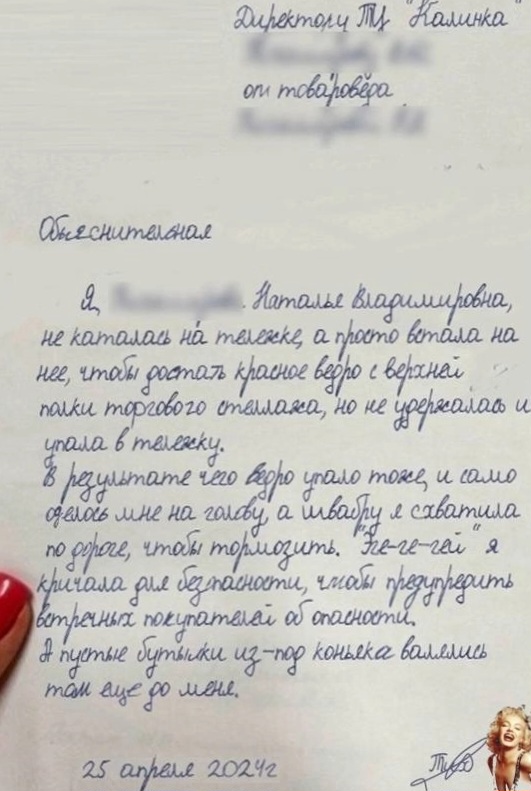 Директору ТЦ "Калинка"
от товароведа
Объяснительная
Я, Наталья Владимировна,
не каталась на тележке, а просто встала на
нее, чтобы достать красное ведро с верхней
полки торгового стеллажа, но не удержалась и
упала в тележку.
В результате чего ведро упало тоже, и само
оделось мне на голову, а швабру я схватила
по дороге, чтобы тормозить. "Ге-ге-гей" я
кричала для безопасности, чтобы предупредить
встречных покупателей об опасности.
А пустые бутылки из-под коньяка валялись
там еще до меня.
25 апреля 2024г